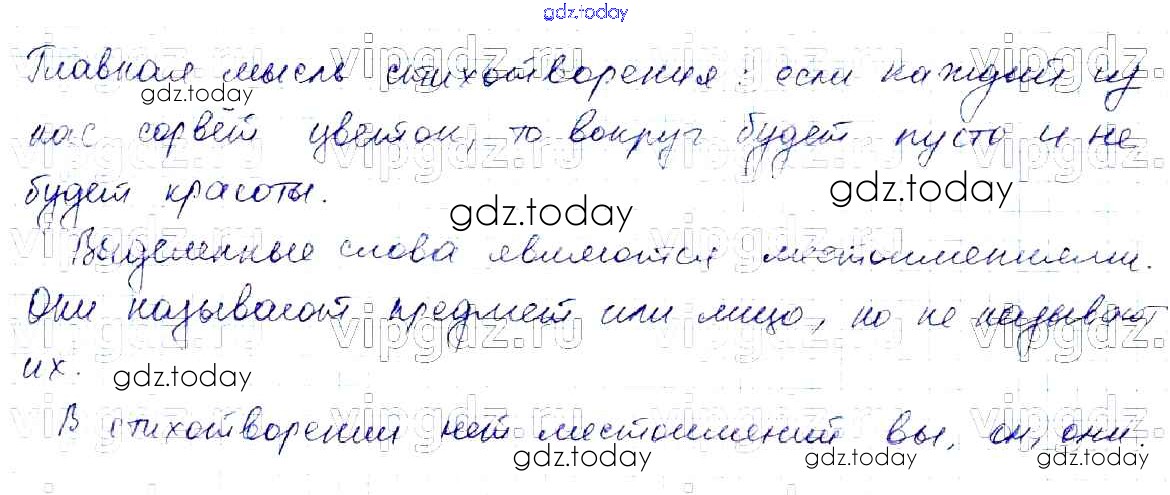 gdz.today
Главная мысль стихотворения: если каждый из
gdz.today
нас сорвёт цветок, то вокруг будет пусто и не
будет красоты.
gdz.today
gdz.today
Выделенные слова являются местоимениями.
Они называют предмет или лицо, но не называют
их.
gdz.today
В стихотворении нет местоимений вы, он, они.
gdz.today
gdz.today
gdz.today